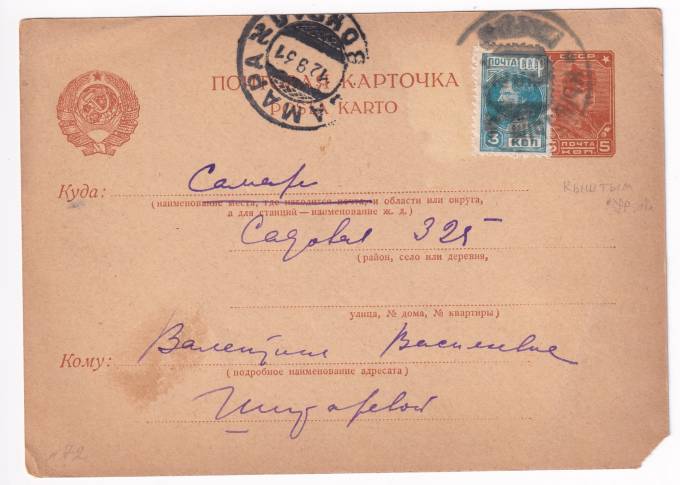 САМАРА
12 9 31
ПОЧТОВАЯ КАРТОЧКА
POŜTA KARTO
ПОЧТА СССР
3 КОП
СССР
ПОЧТА
КОП. 5
Куда: Самара
(наименование места, где находится почта, и области или округа,
а для станций — наименование ж. д.)
Кыштым
Садовая 325
(район, село или деревня,
улица, № дома, № квартиры)
Кому: Валентине Васильевне
(подробное наименование адресата)